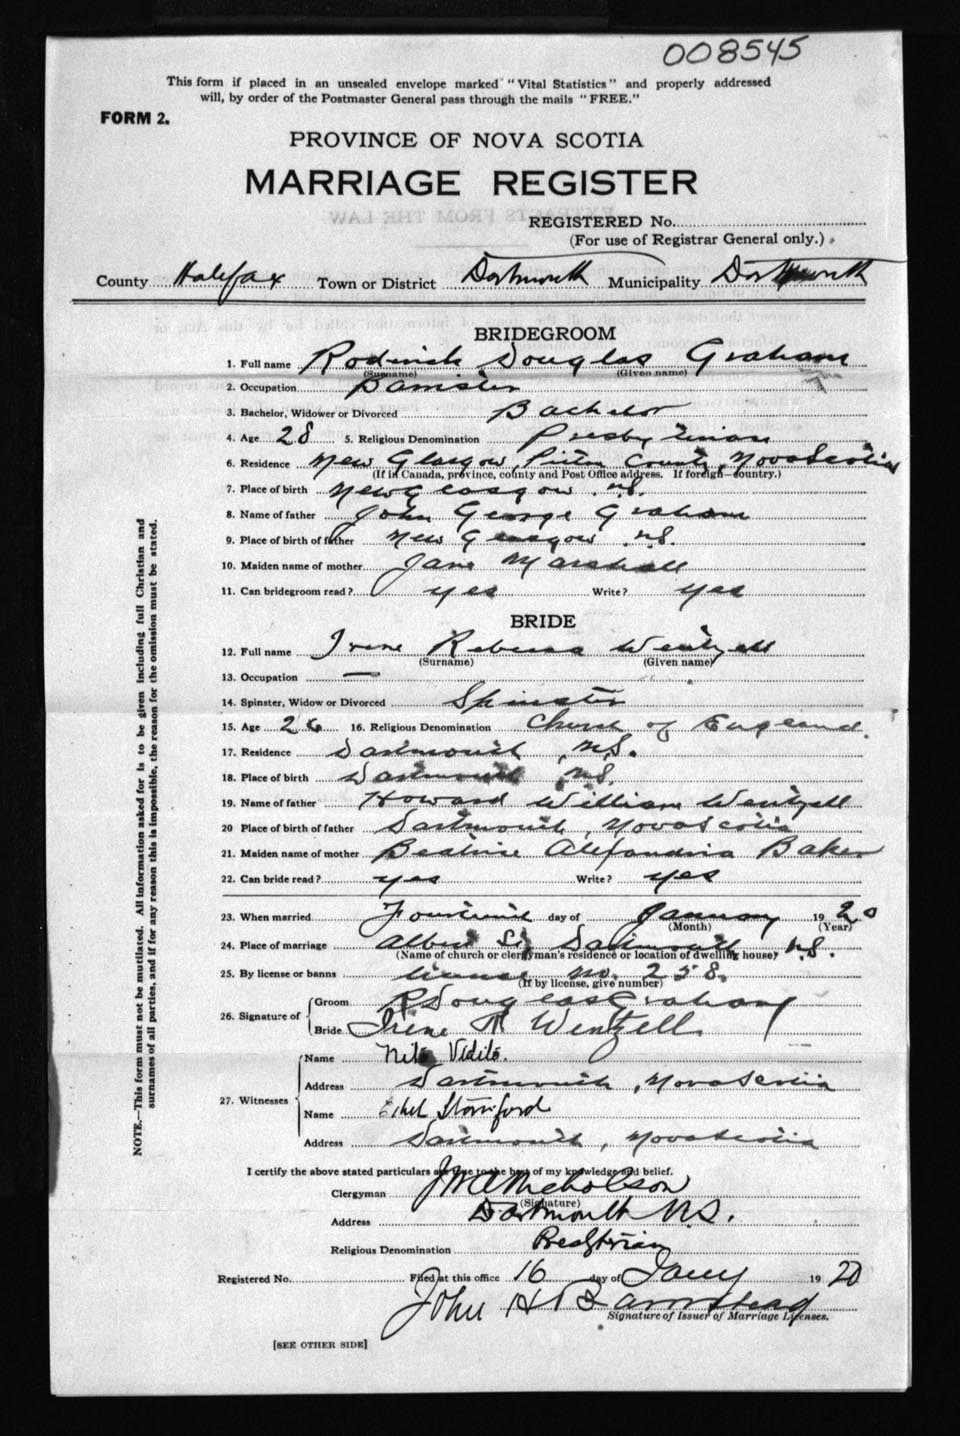 008545
This form if placed in an unsealed envelope marked "Vital Statistics" and properly addressed
will, by order of the Postmaster General pass through the mails "FREE."
FORM 2.
PROVINCE OF NOVA SCOTIA
MARRIAGE REGISTER
REGISTERED No.
(For use of Registrar General only.)
County Halifax Town or District Dartmouth Municipality Dartmouth
BRIDEGROOM
1. Full name Roderick Douglas Graham
(Surname) (Given name)
2. Occupation Barrister
3. Bachelor, Widower or Divorced Bachelor
4. Age 28 5. Religious Denomination Presbyterian
6. Residence New Glasgow, Pictou County, Nova Scotia
(If in Canada, province, county and Post Office address. If foreign—country.)
7. Place of birth New Glasgow N.S.
8. Name of father John George Graham
9. Place of birth of father New Glasgow N.S.
10. Maiden name of mother Jane Marshall
11. Can bridegroom read? yes Write? yes
BRIDE
12. Full name Irene Rebecca Wentzell
(Surname) (Given name)
13. Occupation —
14. Spinster, Widow or Divorced Spinster
15. Age 26 16. Religious Denomination Church of England.
17. Residence Dartmouth, N.S.
18. Place of birth Dartmouth, N.S.
19. Name of father Howard William Wentzell
20 Place of birth of father Dartmouth, Nova Scotia
21. Maiden name of mother Beatrice Alexandria Baker
22. Can bride read? yes Write? yes
23. When married Fourteenth day of January 1920
(Month) (Year)
24. Place of marriage Albert St Dartmouth N.S.
(Name of church or clergyman's residence or location of dwelling house)
25. By license or banns License No. 258.
(If by license, give number)
26. Signature of Groom R Douglas Graham
Bride Irene R Wentzell
27. Witnesses
Name Vidito.
Address Dartmouth, Nova Scotia
Name Ethel
Address Dartmouth, Nova Scotia
I certify the above stated particulars are true to the best of my knowledge and belief.
Clergyman Nicholson
(Signature)
Address Dartmouth N.S.
Religious Denomination Presbyterian
Registered No. Filed at this office 16 day of Jany 1920
John H Barnstead
Signature of Issuer of Marriage Licenses.
[SEE OTHER SIDE]
NOTE.—This form must not be mutilated. All information asked for is to be given including full Christian and
surnames of all parties, and if for any reason this is impossible, the reason for the omission must be stated.